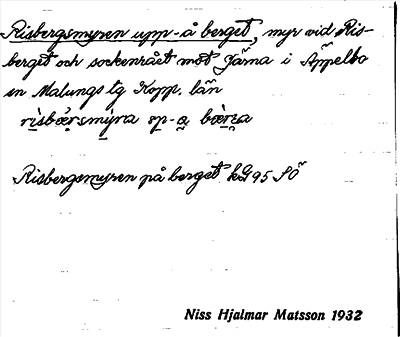 Risbergsmyren upp-å berget, myr vid Ris-
berget och sockenrået mot Järna i Äppelbo
sn Malungs tg Kopp. län
rìsbær̨smýra op-a bær̨a
Risbergsmyren på berget kG95 SÖ
Niss Hjalmar Matsson 1932